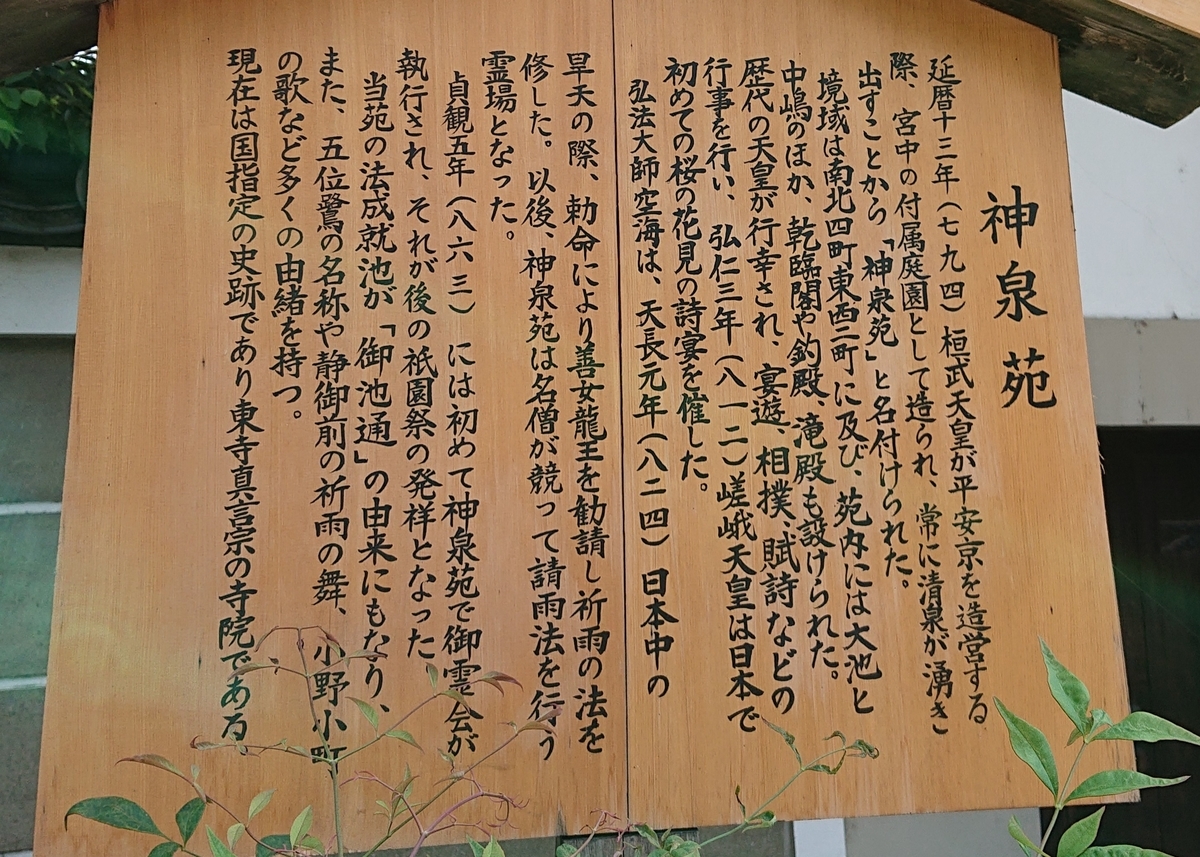 神泉苑
延暦十三年（七九四）桓武天皇が平安京を造営する
際、宮中の付属庭園として造られ、常に清泉が湧き
出すことから「神泉苑」と名付けられた。
境域は南北四町東西二町に及び、苑内には大池と
中嶋のほか、乾臨閣や釣殿、滝殿も設けられた。
歴代の天皇が行幸され、宴遊、相撲、賦詩などの
行事を行い、弘仁三年（八一二）嵯峨天皇は日本で
初めての桜の花見の詩宴を催した。
弘法大師空海は、天長元年（八二四）日本中の
旱天の際、勅命により善女龍王を勧請し祈雨の法を
修した。以後、神泉苑は名僧が競って請雨法を行う
霊場となった。
貞観五年（八六三）には初めて神泉苑で御霊会が
執行され、それが後の祇園祭の発祥となった
当苑の法成就池が「御池通」の由来にもなり、
また、五位鷺の名称や静御前の祈雨の舞、小野小町
の歌など多くの由緒を持つ。
現在は国指定の史跡であり東寺真言宗の寺院である